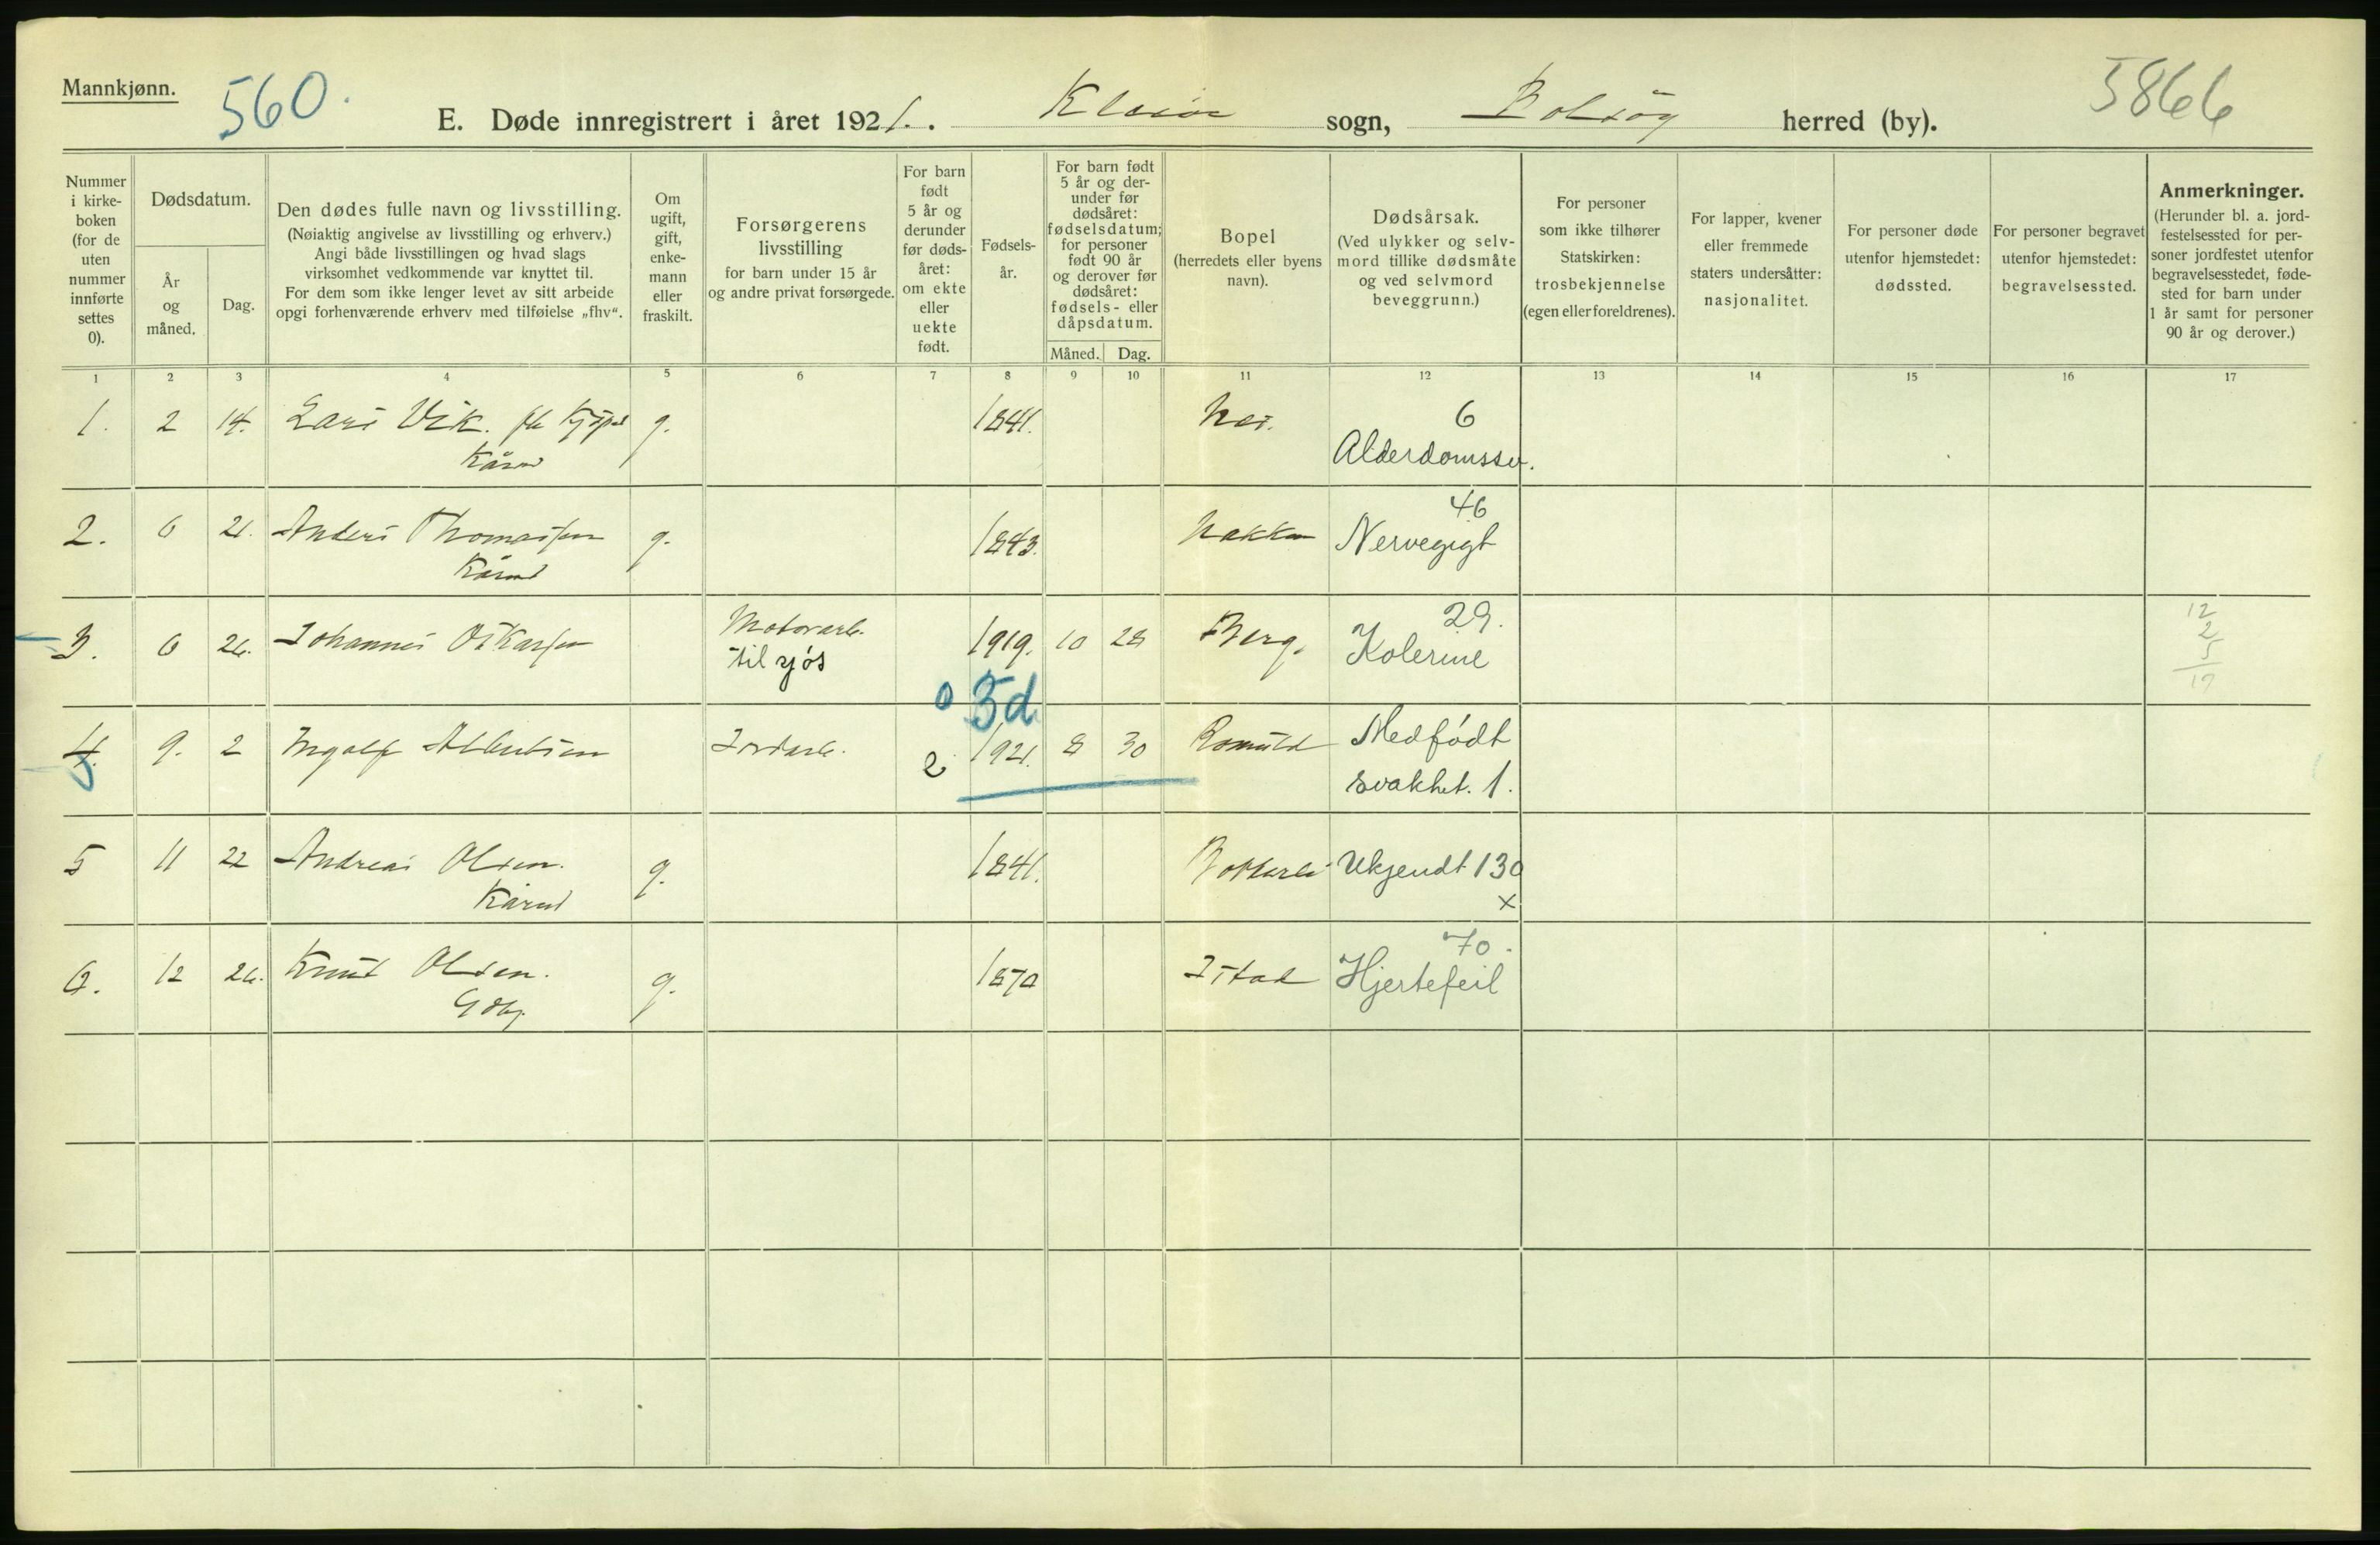 Mannkjønn.
560.
E. Døde innregistrert i året 1921. Kleive sogn, Bolsøy herred (by).
5866
Nummer i kirke-boken (for de uten nummer innførte settes 0).
Dødsdatum.
År og måned.
Dag.
Den dødes fulle navn og livsstilling.
(Nøiaktig angivelse av livsstilling og erhverv.)
Angi både livsstillingen og hvad slags
virksomhet vedkommende var knyttet til.
For dem som ikke lenger levet av sitt arbeide
opgi forhenværende erhverv med tilføielse „fhv“.
Om ugift, gift, enke-mann eller fraskilt.
Forsørgerens livsstilling
for barn under 15 år
og andre privat forsørgede.
For barn født 5 år og derunder før døds-året: om ekte eller uekte født.
Fødsels-år.
For barn født 5 år og der-under før dødsåret: fødselsdatum; for personer født 90 år og derover før dødsåret: fødsels- eller dåpsdatum.
Måned. Dag.
Bopel
(herredets eller byens navn).
Dødsårsak.
(Ved ulykker og selv-mord tillike dødsmåte og ved selvmord beveggrunn.)
For personer som ikke tilhører Statskirken: trosbekjennelse (egen eller foreldrenes).
For lapper, kvener eller fremmede staters undersåtter: nasjonalitet.
For personer døde utenfor hjemstedet: dødssted.
For personer begravet utenfor hjemstedet: begravelsessted.
Anmerkninger.
(Herunder bl. a. jord-festelsessted for per-soner jordfestet utenfor begravelsesstedet, føde-sted for barn under 1 år samt for personer 90 år og derover.)
1 2 3 4 5 6 7 8 9 10 11 12 13 14 15 16 17
1. 2 14. Lars Vik. g. 1841. 6
Kårm Alderdomssv.
46
2. 6 21. Anders Thomassen g. 1843. Nakken Nervegigt
Kårm
29.
3. 6 26. Johannes Oskarsen Motorarb. til sjøs 1919. 10 28 Berg. Kolerine
12
2
5
17
0 3d
4. 9. 2 Ingolf Albertsen Jordarb. e 1921. 8 30 Romuld Medfødt
svakhet. 1.
5 11 22 Andreas Olsen. g. 1841. Ukjendt 130
Kårm x
70.
6. 12 26. Knut Olsen. g. 1870 Istad Hjertefeil
Gbr.